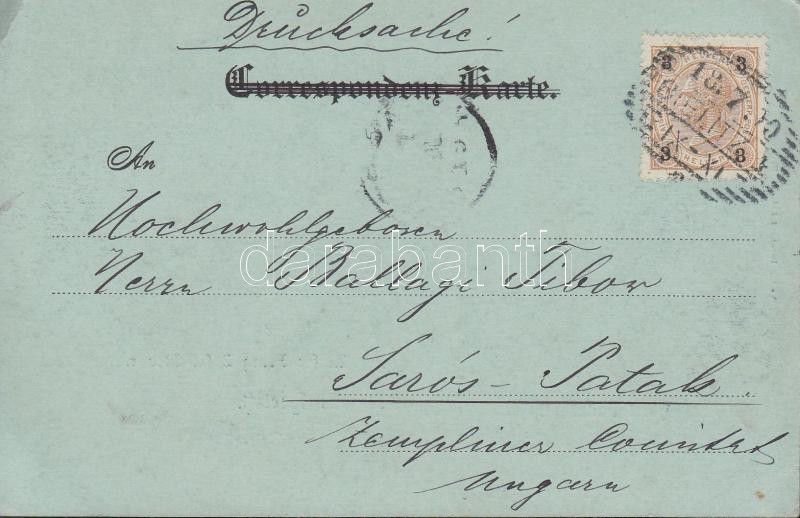 Drucksache!
Correspondenz Karte.
3 3
An
Hochwohlgeboren
darabanth
Herrn Ballagi Tibor
3 3
Sarós-Patak.
Zempliner Comitat
Ungarn